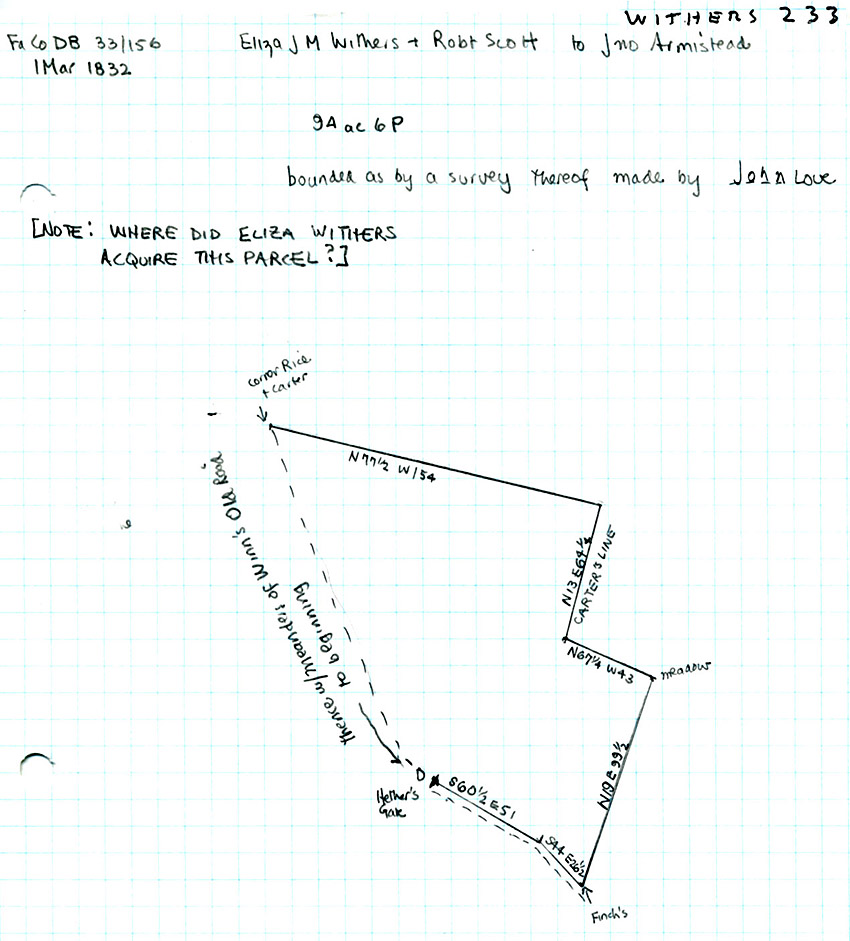 WITHERS 233
Fa Co DB 33/156 Eliza J M Withers + Robt Scott to Jno Armistead
1 Mar 1832
94 ac 6P
bounded as by a survey thereof made by John Love
[NOTE: WHERE DID ELIZA WITHERS
ACQUIRE THIS PARCEL?]
Corner Rice
+ Carter
N77½ W154
thence w/meanders of Winn's Old Road
to beginning
N13 E64¼
CARTER'S LINE
N67¼ W43
meadow
N19 E 99½
S60½ E51
S44 E26½
Gate
Finch's